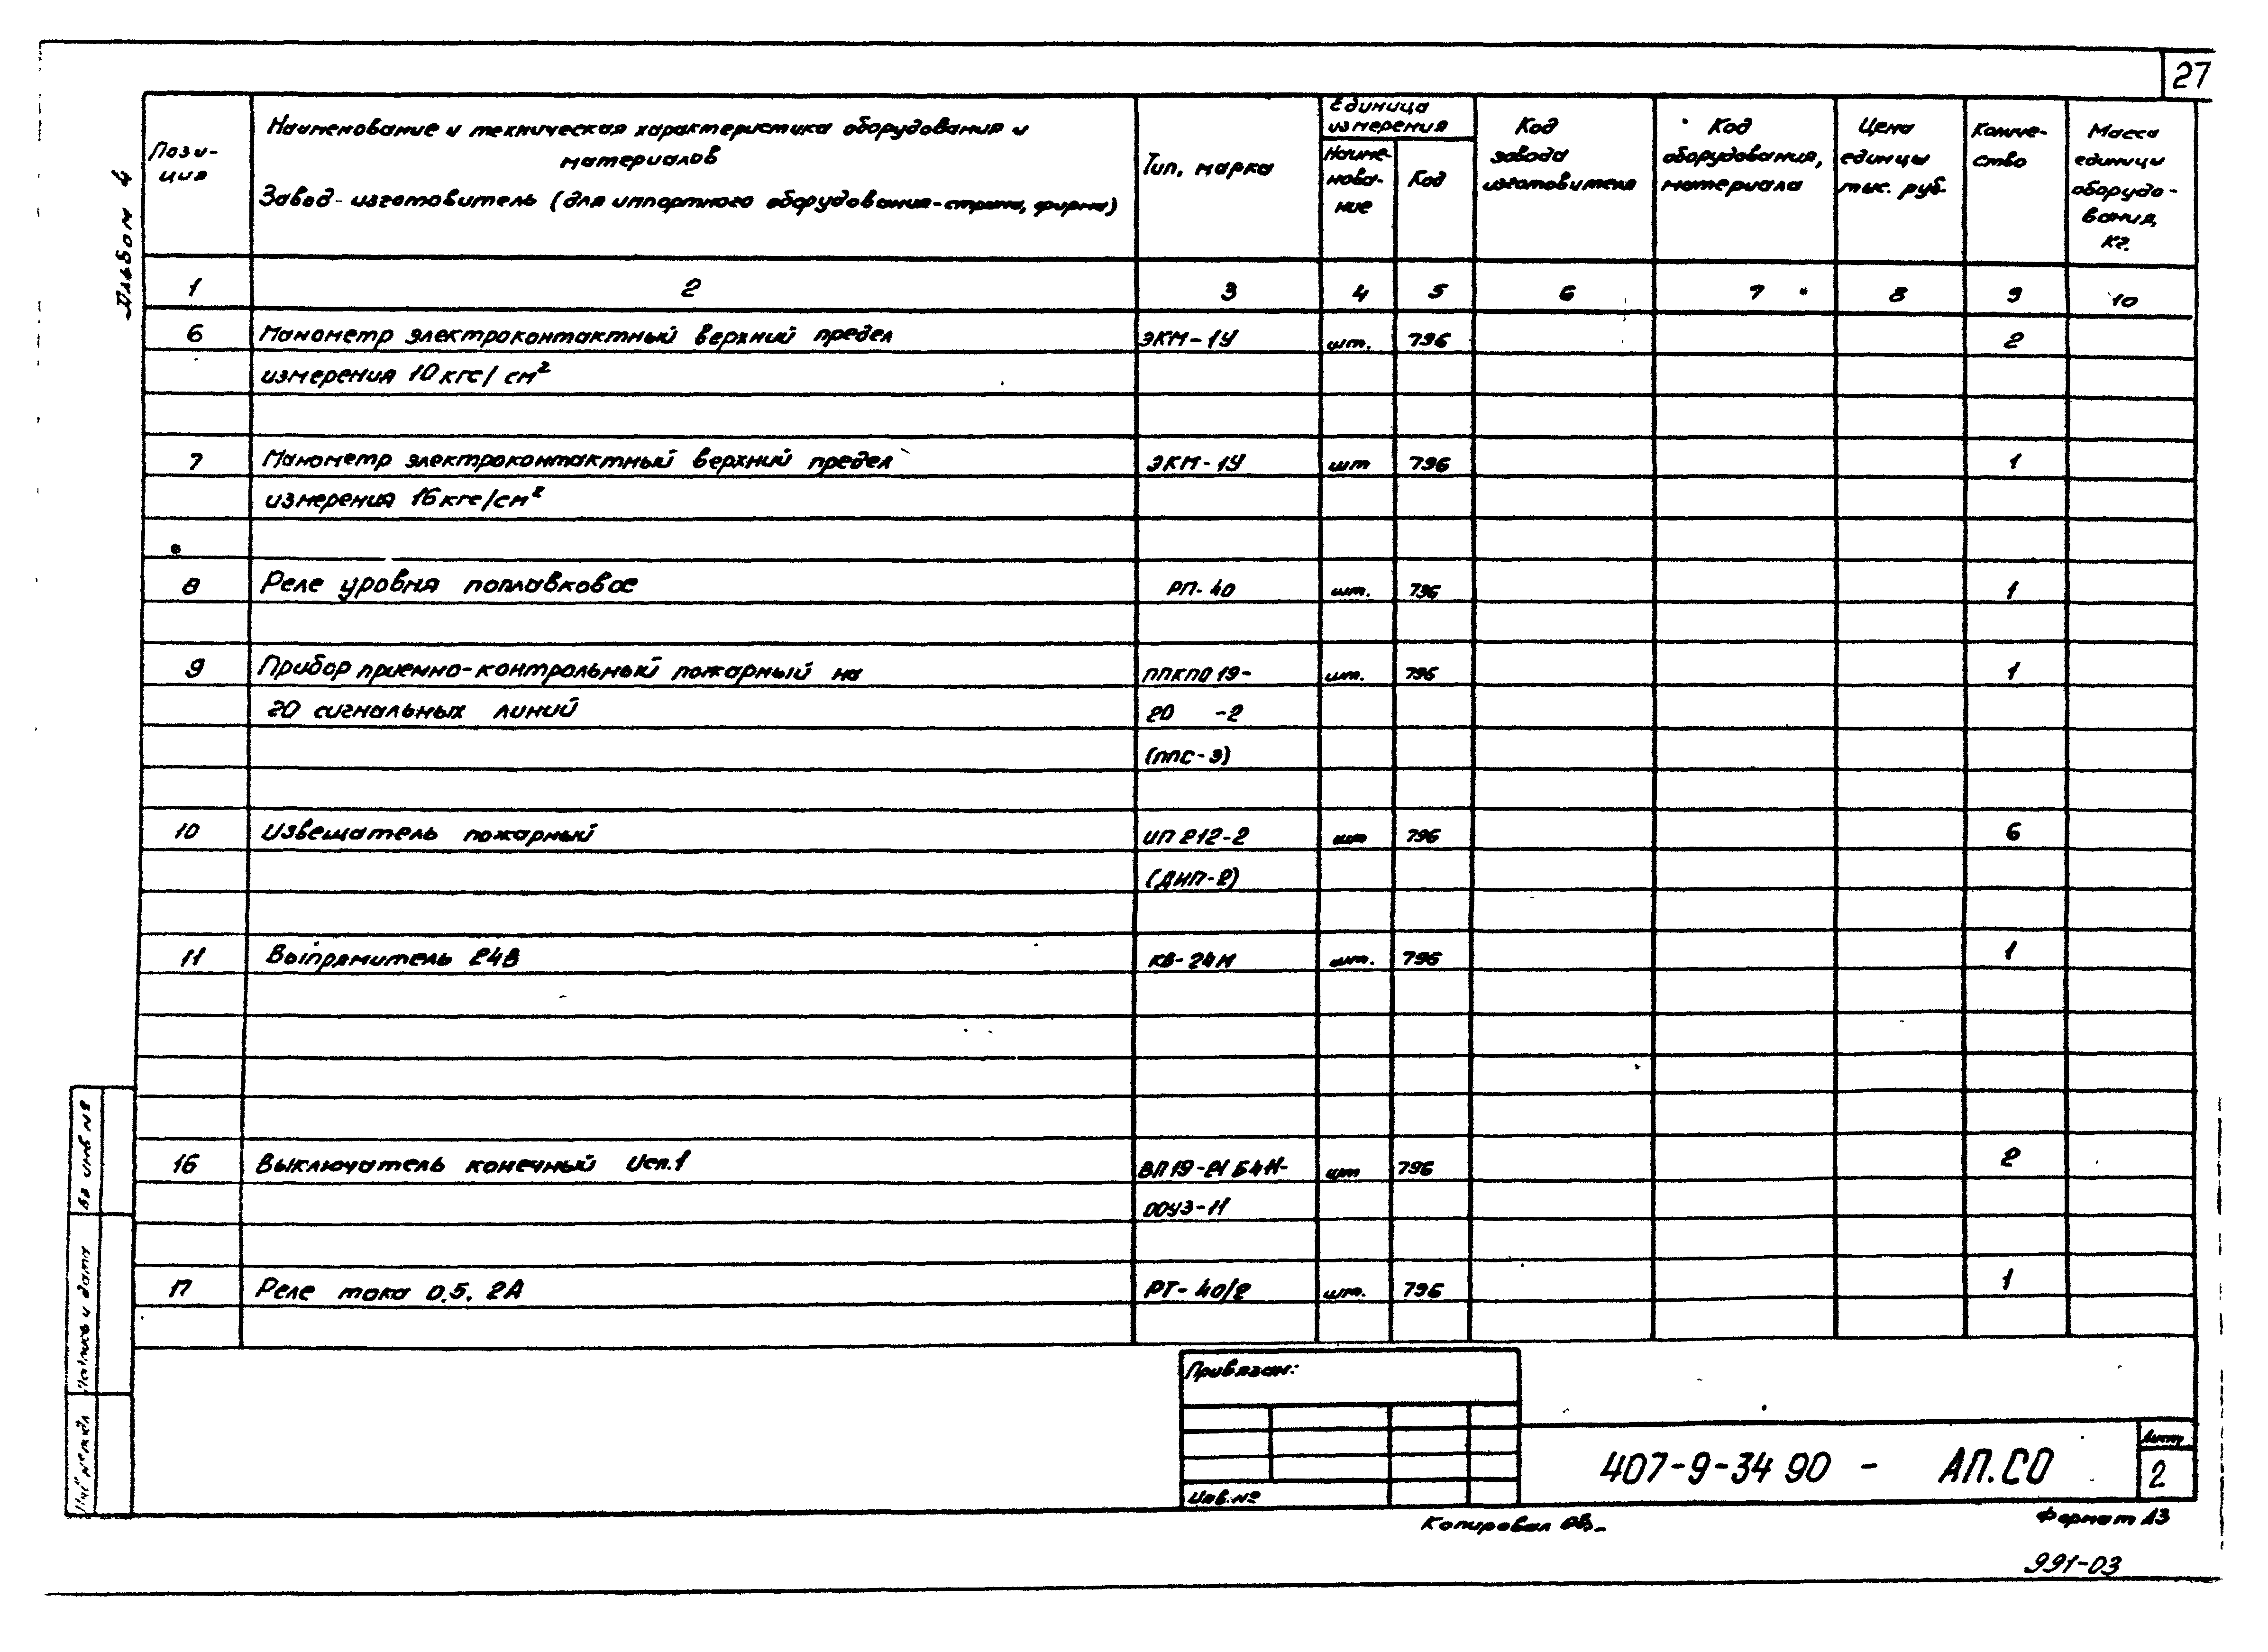 27
Альбом 4
Пози-
ция
Наименование и техническая характеристика оборудования и
материалов
Завод-изготовитель (для импортного оборудования-страна, фирма)
Тип, марка
Единица
измерения
Наиме-
нова-
ние
Код
Код
завода
изготовителя
Код
оборудования,
материала
Цена
единицы
тыс. руб.
Количе-
ство
Масса
единицы
оборудо-
вания,
кг.
1 2 3 4 5 6 7 8 9 10
6 Манометр электроконтактный верхний предел ЭКМ-1У шт. 796 2
измерения 10 кгс/см²
7 Манометр электроконтактный верхний предел ЭКМ-1У шт 796 1
измерения 16 кгс/см²
8 Реле уровня поплавковое РП-40 шт. 796 1
9 Прибор приемно-контрольный пожарный на ППКПО19- шт. 796 1
20 сигнальных линий 20 -2
(ППС-3)
10 Извещатель пожарный ИП 212-2 шт 796 6
(ДИП-2)
11 Выпрямитель 24В КВ-24М шт. 796 1
16 Выключатель конечный Исп.1 ВП19-21Б411- шт 796 2
00У3-11
17 Реле тока 0.5. 2А РТ-40/2 шт. 796 1
Привязан:
Инв.№
407-9-34 90 - АП.СО
Лист
2
Копировал
Формат А3
991-03
Вз инв №
Подпись и дата
Инв № подл